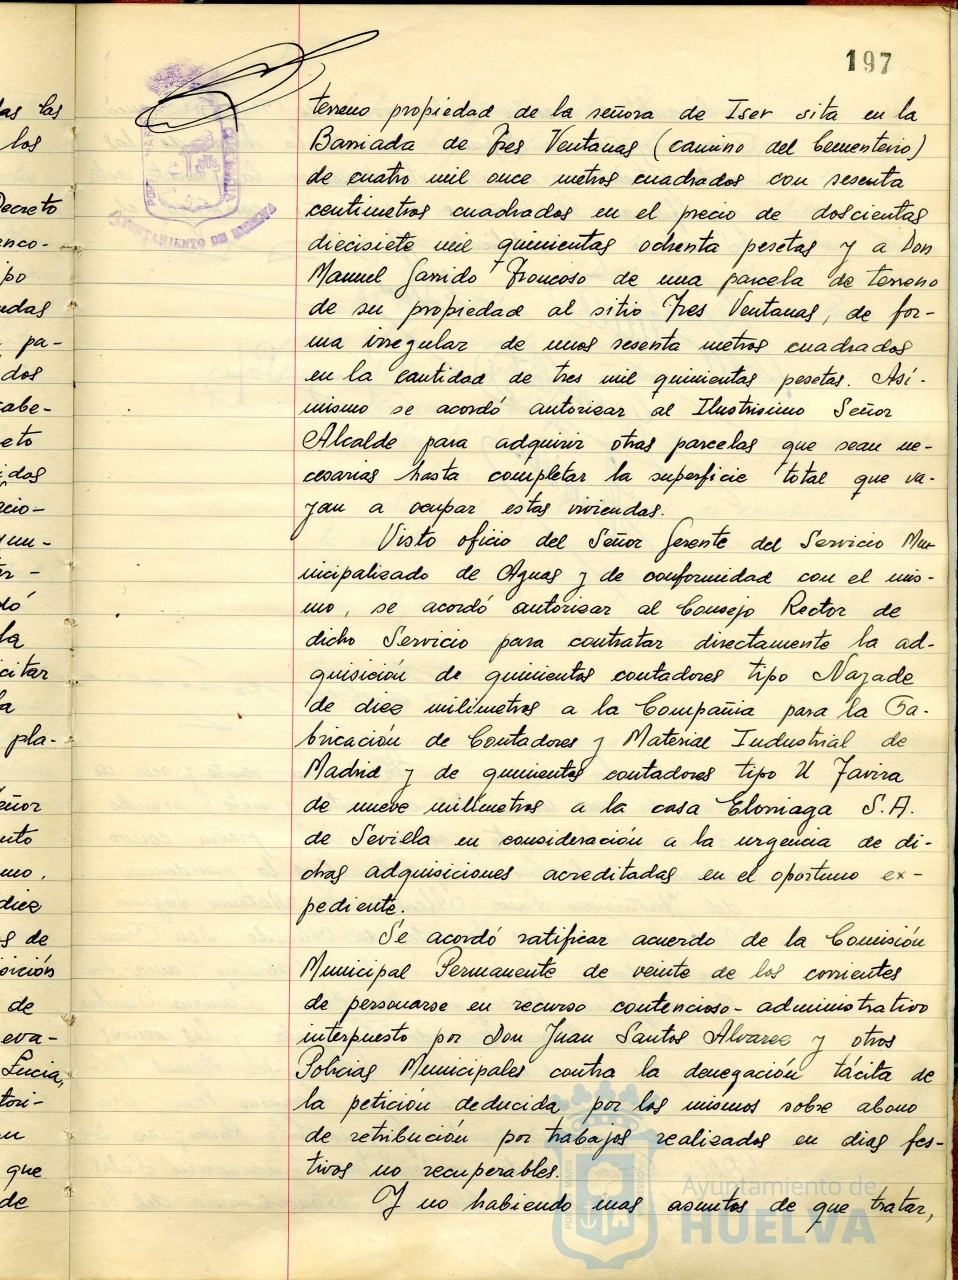 197
terreno propiedad de la señora de Iser sita en la
Barriada de Tres Ventanas (camino del Cementerio)
de cuatro mil once metros cuadrados con sesenta
centimetros cuadrados en el precio de doscientas
diecisiete mil quinientas ochenta pesetas y a Don
Manuel Garrido Troncoso de una parcela de terreno
de su propiedad al sitio Tres Ventanas, de for-
ma irregular de unos sesenta metros cuadrados
en la cantidad de tres mil quinientas pesetas. Así-
mismo se acordó autorizar al Ilustrisimo Señor
Alcalde para adquirir otras parcelas que sean ne-
cesarias hasta completar la superficie total que va-
yan a ocupar estas viviendas.
Visto oficio del Señor Gerente del Servicio Mu-
nicipalizado de Aguas y de conformidad con el mis-
mo, se acordó autorizar al Consejo Rector de
dicho Servicio para contratar directamente la ad-
quisición de quinientos contadores tipo
de diez milimetros a la Compañia para la Fa-
bricación de Contadores y Material Industrial de
Madrid y de quinientos contadores tipo U Tavira
de nueve milímetros a la casa Elorriaga S.A.
de Sevilla en consideración a la urgencia de di-
chas adquisiciones acreditadas en el oportuno ex-
pediente.
Se acordó ratificar acuerdo de la Comisión
Municipal Permanente de veinte de los corrientes
de personarse en recurso contencioso-administrativo
interpuesto por Don Juan Santos Alvarez y otros
Policias Municipales contra la denegación tácita de
la petición deducida por los mismos sobre abono
de retribución por trabajos realizados en dias fes-
tivos no recuperables.
Y no habiendo mas asuntos de que tratar,
AYUNTAMIENTO DE HUELVA
das las
los
Decreto
enco-
ipo
ndas
pa-
dos
cabe-
eto
idos
acio-
dó
la
citar
la
pla-
eñor
nto
mo.
diez
s de
sición
de
eva-
Lucia,
tori-
que
de
Ayuntamiento de
HUELVA